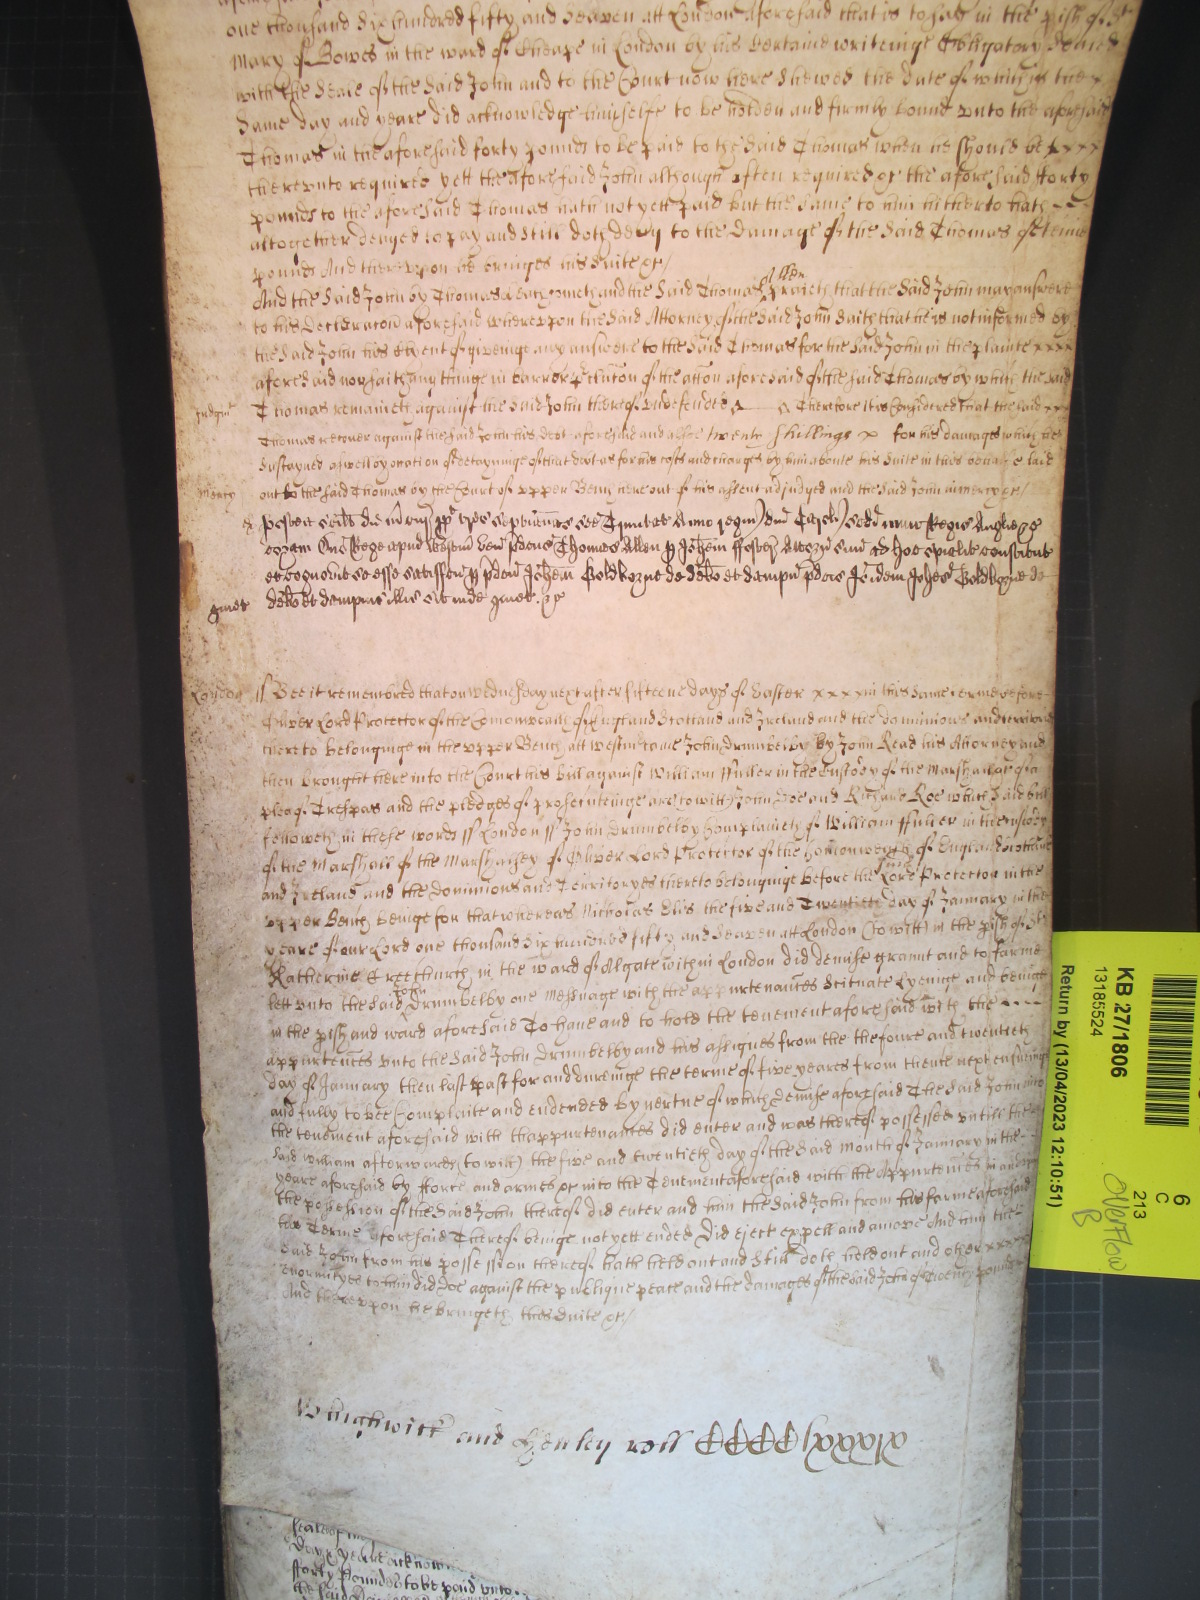 one thousand six hundred fifty and seaven att London aforesaid that is to say in the pish of St
Mary of Bowes in the ward of Cheape in London by his certaine writeinge Obligatory sealed
with the seale of the said John and to the Court now here shewed the date of which is the
same day and yeare did acknowledge himselfe to be holden and firmly bound unto the aforesaid
Thomas in the aforesaid forty pounds to be paid to the said Thomas when he should be xxxx
thereunto required yett the aforesaid John although often required of the aforesaid forty
pounds to the aforesaid Thomas hath not yett paid but the same to him hitherto hath
altogether denyed to pay and still doth deny to the damage of the said Thomas of tenne
pounds And thereupon he bringes his suite &c/
And the said John by Thomas cometh and the said Thomas Allen prayeth that the said John may answere
to his Declaracon aforesaid whereupon the said Attorney of the said John saith that he is not informed by
the said John his Clyent of giveinge any answere to the said Thomas for the said John in the plainte xxxx
aforesaid nor saith any thinge in barr or pclusion of the accon aforesaid of the said Thomas by which the said
Judgmt Thomas remaineth against the said John thereof undefended Therefore it is Considered that the said xxx
Thomas recover against the said John his debt aforesaid and alsoe twenty shillings x for his damages which he
sustayned aswell by occation of detayninge of that debt as for his costs and charges by him aboute his suite in this behalfe laid
Mercy out to the said Thomas by the Court of upper Bench here out of his assent adjudged and the said John in mercy &c/
Postea scilt die
coram Dno Rege apud Westm ven pdcus Thomas Allen p Johem Attorn suu ad hoc spialit constitut
et cognovit se esse satisfcu p pdcm Johem Goldborne de debo et dampn pdcis Ideo idem Johes Goldborne de
quiet debo et dampnis illis sit inde quiet. &c
London ss Bee it remembred that on wednesday next after fifteene dayes of Easter xxxx in this same terme before
Oliver Lord Protector of the Comonwealth of England Scotland and Ireland and the dominions and territories
thereto belonginge in the upper Bench att Westm came John Drumbelby by John Read his Attorney and
then brought here into the Court his bill against William ffuller in the Custody of the Marshall &c of a
plea of Trespas and the pledges of prosecuteinge are to witt John Doe and Richard Roe which said bill
followeth in these words ss London ss John Drumbelby Complaineth of William ffuller in the custody
of the Marshall of the Marshalsey of Oliver Lord Protector of the Comonwealth of England Scotland
and Ireland and the Dominions and Territoryes thereto belonginge before the said Lord Protector in the
upper Bench beinge for that whereas Nicholas Elis the five and Twentieth day of January in the
yeare of our Lord one thousand six hundred fifty and seaven att London (to witt) in the pish of St
Katherine Creechurch in the ward of Algate within London did demise graunt and to farme
lett unto the said John Drumbelby one Messuage with the appurtenances scituate lyeinge and beinge
in the pish and ward aforesaid To have and to hold the tenement aforesaid with the
appurtences unto the said John Drumbelby and his assignes from the the foure and twentieth
day of January then last past for and dureinge the terme of five yeares from thence next ensueinge
and fully to bee Complaite and endended by vertue of which demise aforesaid The said John into
the tenement aforesaid with thappurtenances did enter and was thereof possessed untill the
said William afterwards (to witt) the five and twentieth day of the said month of January in the
yeare aforesaid by fforce and armes &c into the Tenement aforesaid with the Appurtences in and upon
the possession of the said John thereof did enter and him the said John from his farme aforesaid
his Terme aforesaid Thereof beinge not yett ended Did eject expell and amove And him the
said John from his possession thereof hath held out and still doth hold out and other xxxx
enormityes to him did Doe against the publique peace and the damages of the said John of twenty pounds
And thereupon he bringeth this suite &c/
Wightwick and Henley roll CCCClxxxxix
seale of
day & yeare acknow
fforty Pounds to be paid unto
the said
KB 27/1806
13185524
Return by (13/04/2023 12:10:51)
6
C
213
Overflow
B